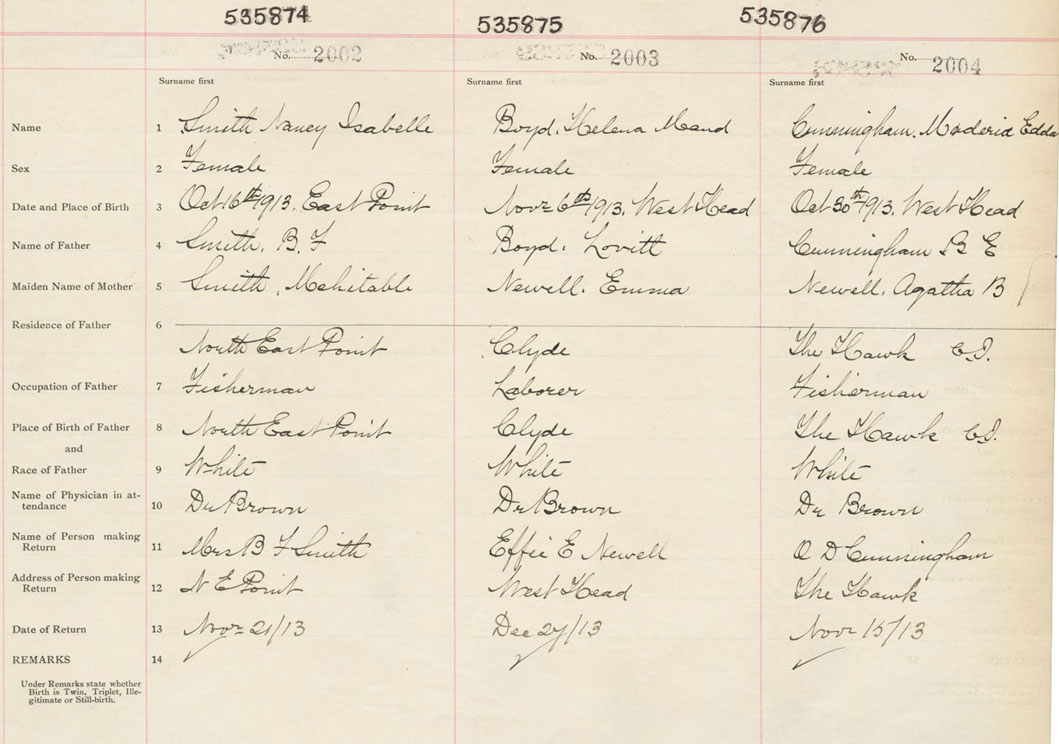 535874 535875 536876
No. 2002 No. 2003 No. 2004
Surname first Surname first Surname first
Name 1 Smith Nancy Isabelle Boyd. Helena Maud Cunningham. Maderia Edda
Sex 2 Female Female Female
Date and Place of Birth 3 Oct 16th 1913. East Point Novr 6th 1913. West Head Oct 30th 1913. West Head
Name of Father 4 Smith. B. F Boyd. Lovitt Cunningham B E
Maiden Name of Mother 5 Smith, Mehitable Newell. Emma Newell. Agatha B
Residence of Father 6
North East Point Clyde The Hawk C.I.
Occupation of Father 7 Fisherman Laborer Fisherman
Place of Birth of Father 8 North East Point Clyde The Hawk C.I.
and
Race of Father 9 White White White
Name of Physician in at-
tendance 10 Dr Brown Dr Brown Dr Brown
Name of Person making
Return 11 Mrs B F Smith Effie E Newell O D Cunningham
Address of Person making
Return 12 N E Point West Head The Hawk
Date of Return 13 Novr 21/13 Dec 27/13 Novr 15/13
REMARKS 14
Under Remarks state whether
Birth is Twin, Triplet, Ille-
gitimate or Still-birth.